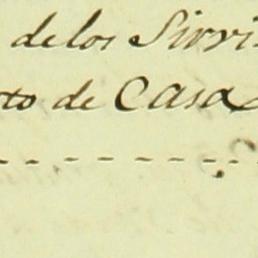 de los Sirvi
to de Casa